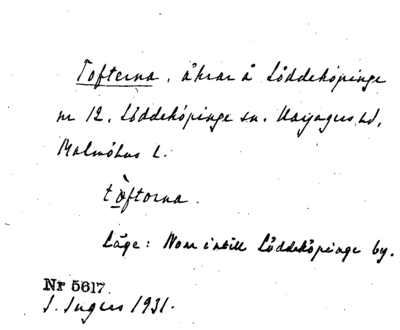 Tofterna, åkrar å Löddeköpinge
nr 12, Löddeköpinge sn. Harjagers hd,
Malmöhus l.
tòftorna.
Läge: Norr intill Löddeköpinge by.
Nr 5617
S. Ingers 1931.